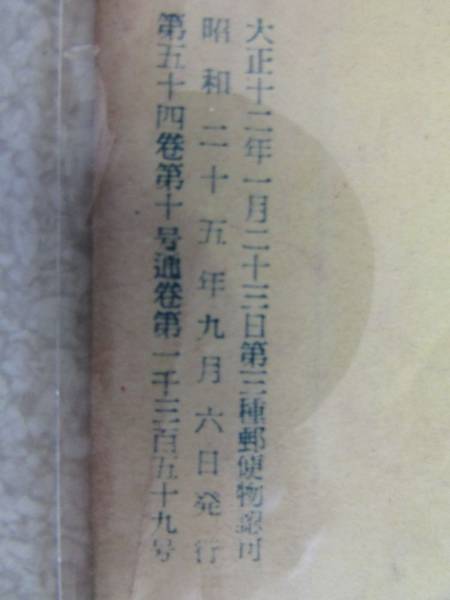 大正十二年一月二十三日第三種郵便物認可
昭和二十五年九月六日発行
第五十四卷第十号通卷第一千三百五十九号